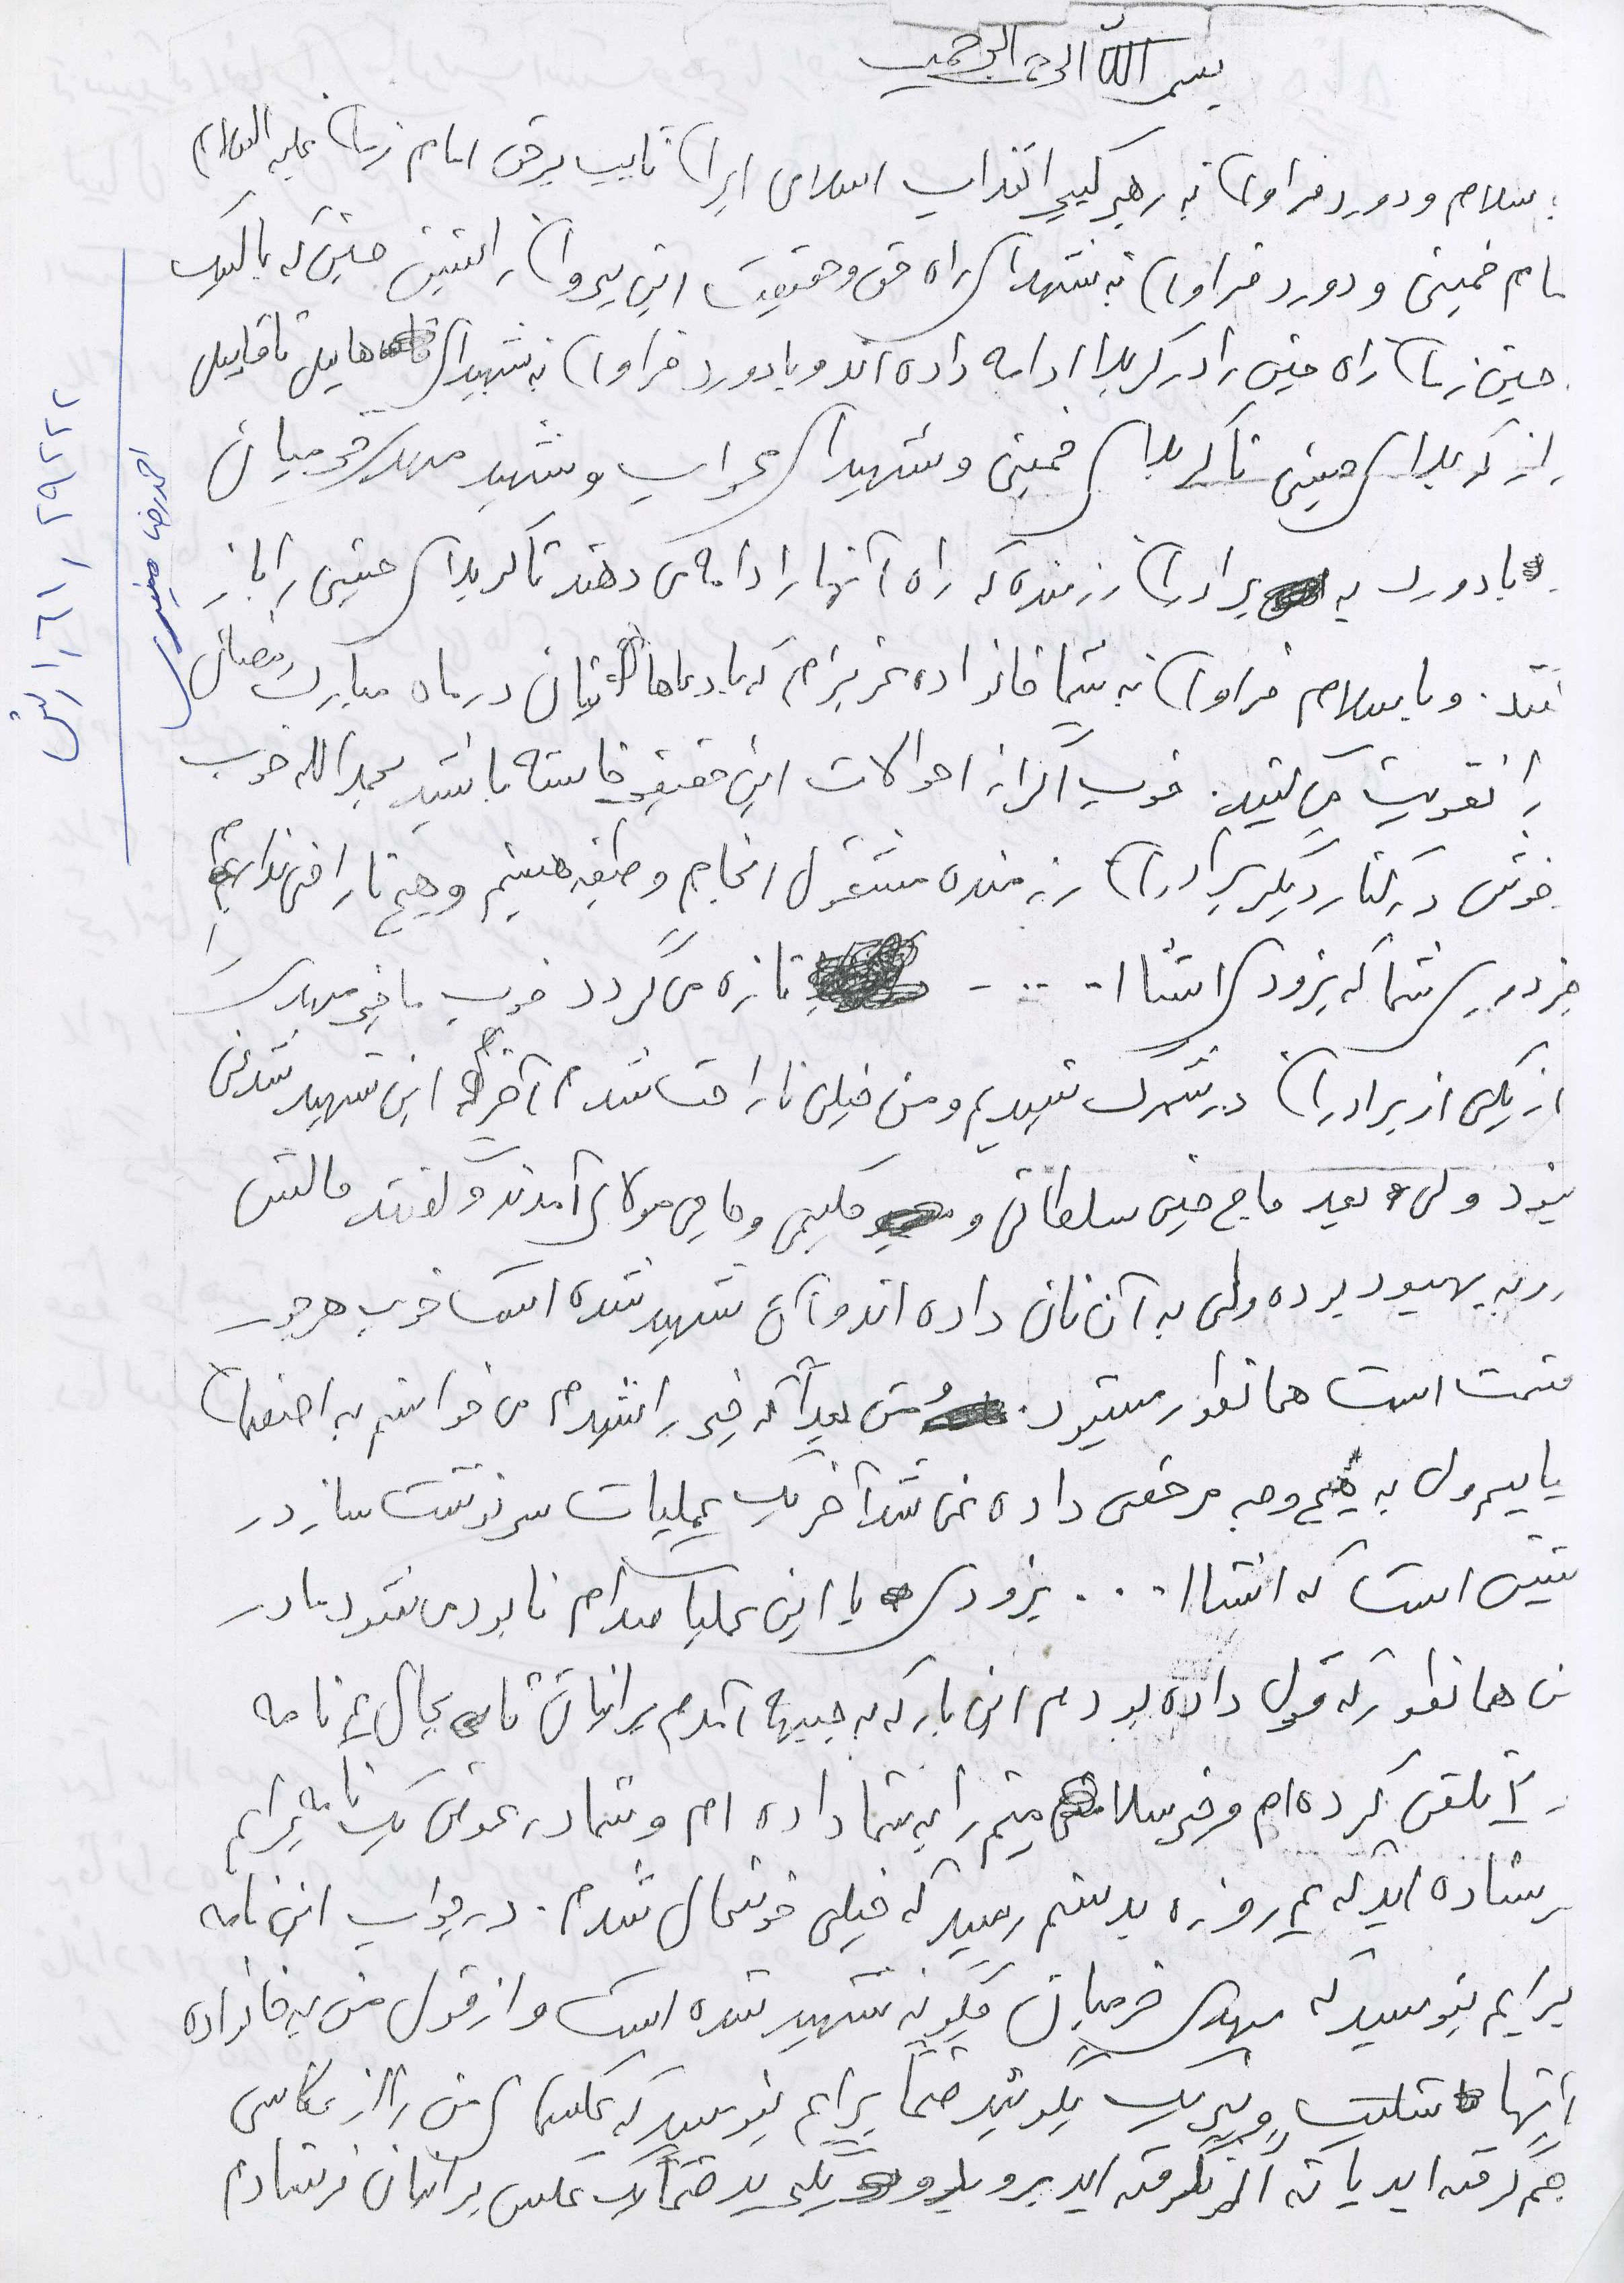 بسم الله الرحمن الرحیم
سلام و دورد فراوان به رهبر کبیر انقلاب اسلامی ایران نایب برحق امام زمان علیه السلام
امام خمینی و دورد فراوان به شهدای راه حق و حقیقت این پیروان راستین حسین که با لبیک
حسین زمان راه حسین را در کربلا ادامه داده اند و با دورد فراوان به شهیدای هابیل تا قابیل
از کربلای حسینی تا کربلای خمینی و شهیدای محراب و شهید مهدی خرمیان
با دورد به برادران رزمنده که راه آنها را ادامه می دهند تا کربلای حسینی را باز
کنند. و با سلام فراوان به شما خانواده عزیزم که با دعاهایتان در ماه مبارک رمضان
را تقویت می کنید. خوب اگر از احوالات این حقیر خواسته باشید بحمدالله خوب
خوش در کنار دیگر برادران رزمنده مشغول انجام وظیفه هستیم و هیچ ناراحتی نداریم
جز دوری شما که بزودی انشاا.... تازه می گردد خوب ما خبر مهدی را
از یکی از برادران در شهرک شنیدیم و من خیلی ناراحت شدم آخر که این شهید شدنی
نبود ولی بعد حاج حسین سلطانی و حکیمی و حاجی مولای آمدند و گفتند حالش
رو به بهبود بوده ولی به آن نان داده اند و آن شهید شده است خوب هر جور
قسمت است همانطور میشود. من بعد آنکه خبر را شنیدم می خواستم به اصفهان
بیاییم ولی به هیچ وجه مرخصی داده نمی شد آخر یک عملیات سرنوشت ساز در
پیش است که انشاا... بزودی با این عملیات صدام نابود می شود مادر
من همانطور که قول داده بودم این بار که به جبهه آمدم برایتان تا بحال ۴ نامه
و ۲ تلفن کرده ام و خبر سلامتیم را به شما داده ام و شما در عوض یک نامه برایم
فرستاده اید که ۴ روزه بدستم رسید که خیلی خوشحال شدم. در جواب این نامه
برایم بنویسید که مهدی خرمیان چگونه شهید شده است و از قول من به خانواده
آنها تسلیت و تبریک بگوئید ضمناً برایم بنویسید که عکسهای من را از عکاسی
هم گرفته اید یا نه اگر نگرفته اید بروید و بگیرید ضمناً یک عکس برایتان فرستادم
احمدرضا
۲۹۲۲۲